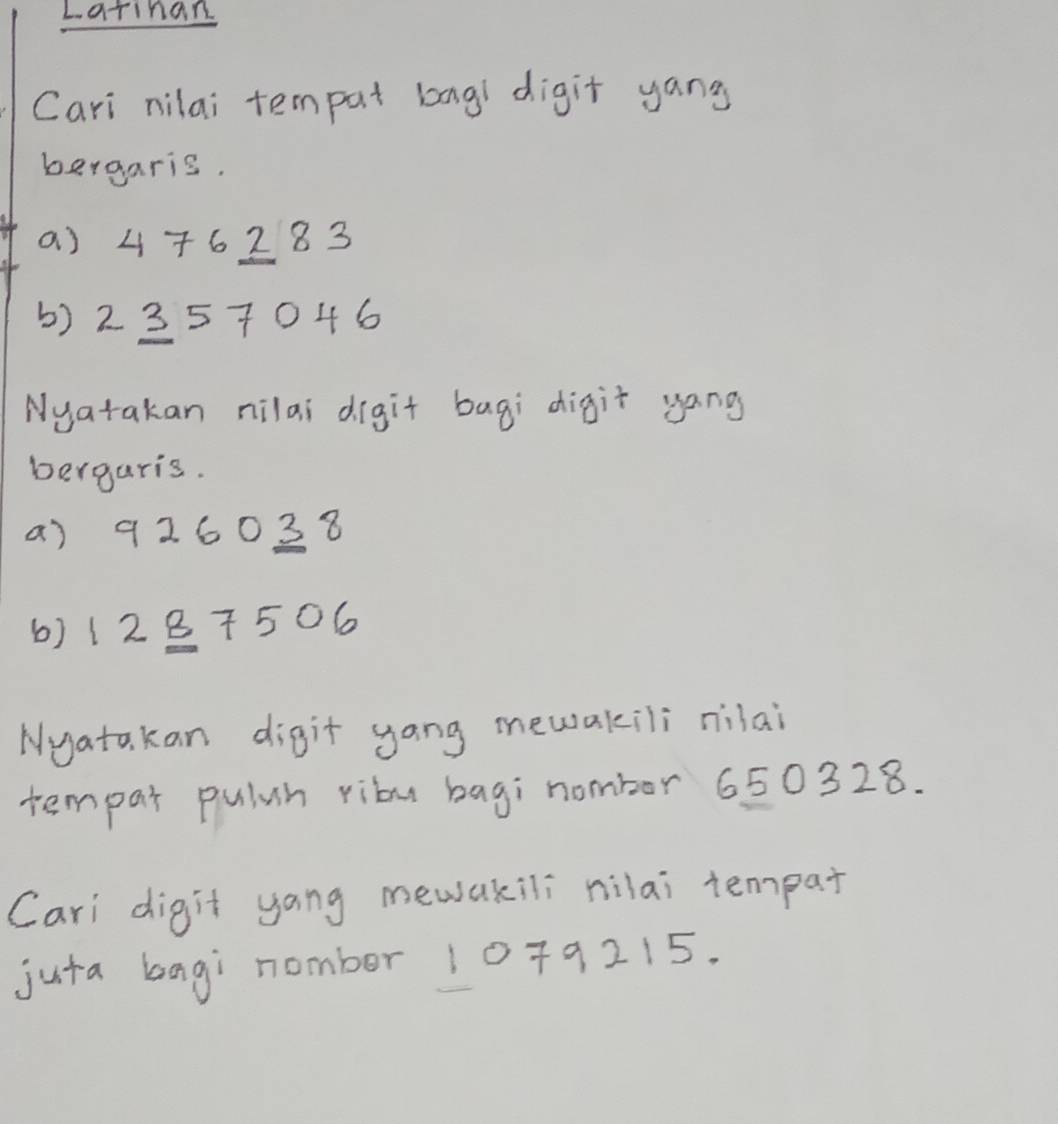 Latihan
Cari nilai tempat bagi digit yang
bergaris.
a) 476283
b) 2357046
Nyatakan nilai digit bagi digit yang
bergaris.
a) 926038
b) 1287506
Nyatakan digit yang mewakili nilai
tempat puluh ribu bagi nombor 650328.
Cari digit yang mewakili nilai tempat
juta bagi nombor 1079215.